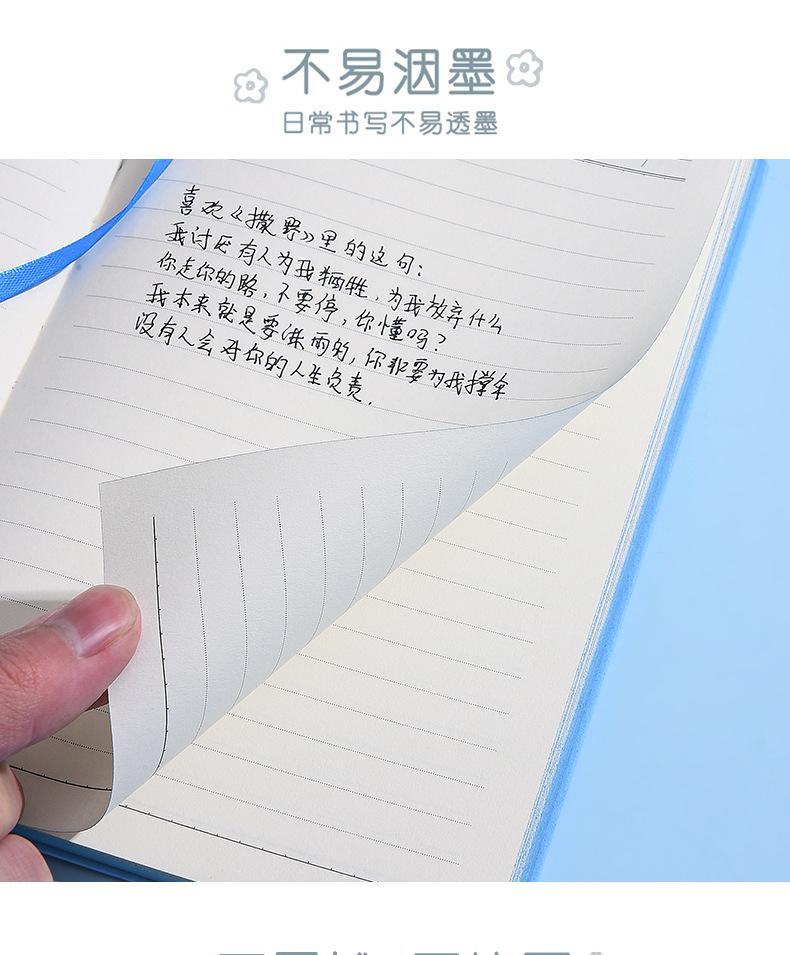 不易洇墨
日常书写不易透墨
喜欢《撒野》里的这句：
我讨厌有人为我牺牲，为我放弃什么
你走你的路，不要停，你懂吗？
我本来就是要淋雨的，你非要为我撑伞
没有人会对你的人生负责．